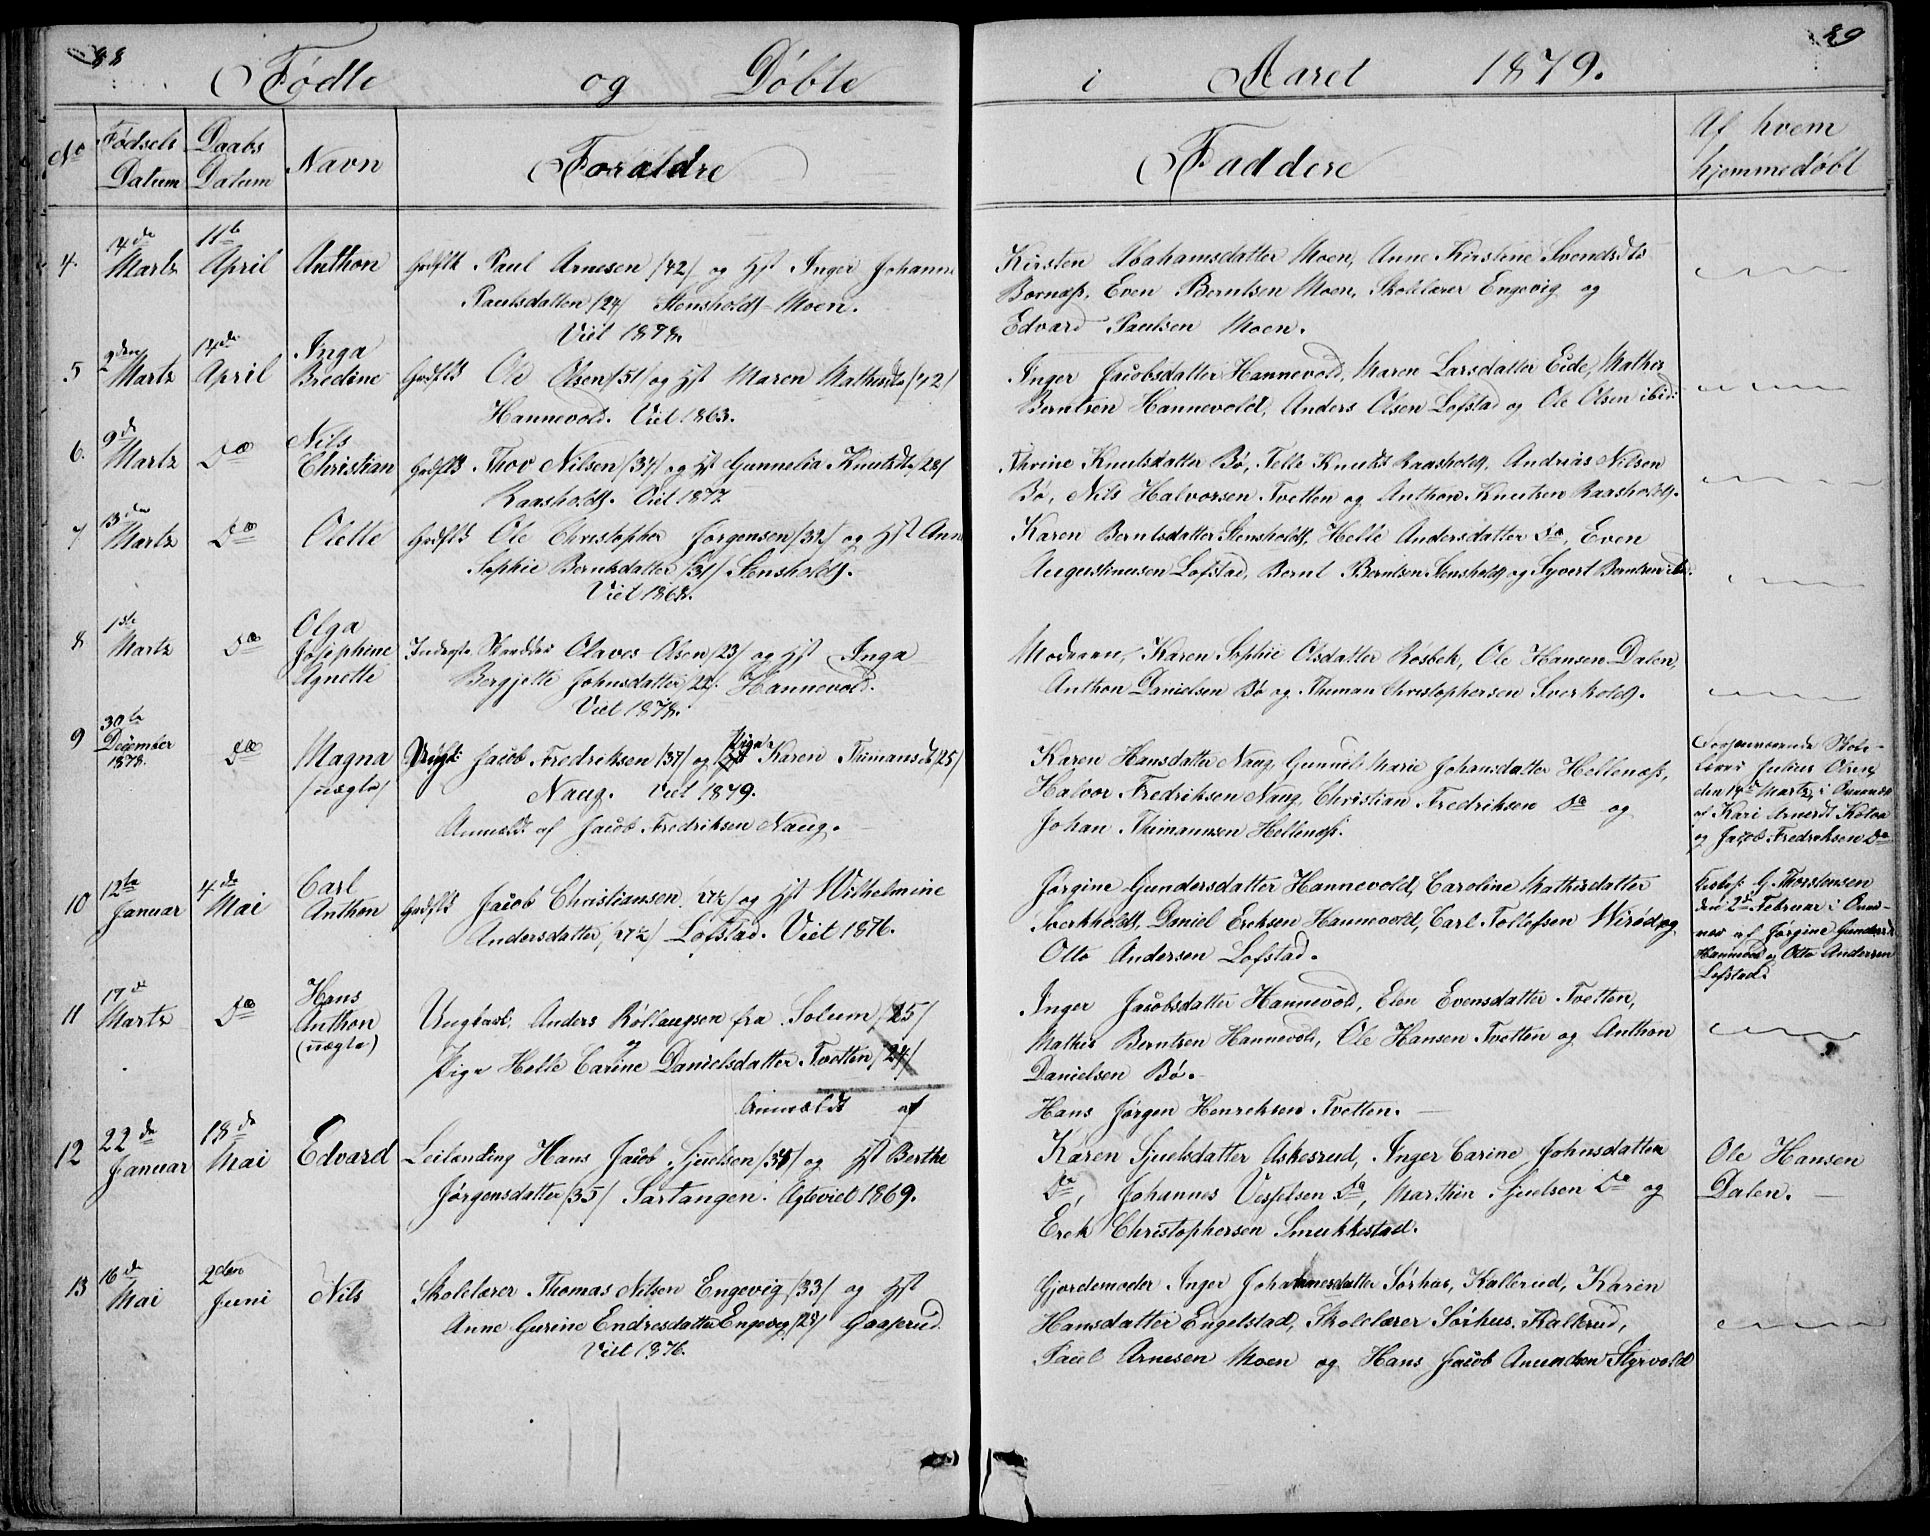 88
89
Fødte og Døbte i Aaret 1879.
No
Fødsels Datum
Daabs Datum
Navn
Forældre
Faddere
Af hvem hjemmedøbt
4. 14de Martz 11te April Anthon Gadfd Paul Arnesen /42/ og Hst Inger Johanne
Paulsdatten /24/ Stensholdt-Moen.
Viet 1878.
Kirsten Abahamsdatter Moen, Anne Kirstine Svendsdts
Bornæss, Even Berntsen Moen, Skolelærer Engevig og
Edvard Paulsen Moen.
5 2den Martz 14de April Inga Bredine Ole Olsen /51/ og Hst Maren Mathisdtr /42/
Hannevold. Viet 1863.
Inger Jacobsdatter Hannevold, Maren Larsdatter Eide, Mathis
Berntsen Hannevold, Anders Olsen Lofstad og Ole Olsen ibid:
6. 9de Martz Do Nils Christian Thov Nilsen /34/ og Hst Gunnelia Knutsdtr /28/
Raasholdt. Viet 1877
Thrine Knutsdatter Bø, Telle Knutsdt Raasholdt, Andrias Nilsen
Bø, Nils Halvorsen Tvetten og Anthon Knutsen Raasholdt.
7 13den Martz Do Olette Ole Christopher Jørgensen /32/ og Hst Ann
Sophie Berntsdatter /31/ Stensholdt.
Viet 1868.
Karen Berntsdatter Stensholdt, Helle Andersdatter Do, Even
Augustinusen Lofstad, Bernt Berntsen Stensholdt og Syvert Berntsen ibd.
8 1ste Martz Do Olga Josephine Agnette Inderste Skrædder Olaves Olsen /23/ og Hst Inga
Bergjette Johnsdatter /22/ Hannevold.
Viet 1878.
Moderen, Karen Sophie Olsdatter Rosbek, Ole Hansen Dalen,
Anthon Danielsen Bø og Thiman Christophersen Sverholdt.
9 30te December 1878. Do Magna /uægte/ Ungk: Jacob Fredriksen /37/ og Pige Karen Thimansdt /25/
Naug. Viet 1879.
Anmeldt af Jacob Fredriksen Naug.
Karen Hansdatter Naug, Gunnil Marie Johansdatter Hellenæss,
Halvor Fredriksen Naug, Christian Fredriksen Do og
Johan Thimannsen Hellenæss.
Forhenværende Skole-
lærer Julius Olsen
den 14de Martz, i Overvær
af Kari Arnesdt Kolsa
og Jacob Fredriksen Do
10 12te Januar 4de Mai Carl Anthon Jacob Christiansen og Hst Wilhelmine
Andersdatter, Lofstad. Viet 1876.
Jørgine Gundersdatter Hannevold, Caroline Mathisdatter
Sverkholdt, Daniel Eriksen Hannevold, Carl Tollefsen Wirød og
Otto Andersen Lofstad.
G. Thorstensen
den 2de Februar i Over-
vær af Jørgine Gundersdt
Hannevold og Otto Andersen
Lofstad.
11 17de Martz Do Hans Anthon (uægte) Ungkarl, Anders Rollaugsen fra Solum /25/
Pige Helle Carine Danielsdatter Tvetten /24/
Anmeldt af
Inger Jacobsdatter Hannevold, Elen Evensdatter Tvetten,
Mathis Berntsen Hannevold, Ole Hansen Tvetten og Anthon
Danielsen Bø.
Hans Jørgen Henriksen Tvetten.
12 22de Januar 18de Mai Edvard Leilænding Hans Jacob Sjuelsen /34/ og Hst Berthe
Jørgensdatter /35/ Sartangen. Ægteviet 1869.
Karen Sjuelsdatter Askesrud, Inger Carine Johnsdatter
Do, Johannes Vesselsen Do, Marthin Sjuelsen Do og
Erek Christophersen Smukkestad.
Ole Hansen
Dalen.
13 16de Mai 2den Juni Nils Skolelærer Thomas Nilsen Engevig /33/ og Hst
Anne Gurine Endresdatter Engevig /28/ Gaaserud.
Viet 1876.
Gjordemoder Inger Johannesdatter Sørhus, Kallerud, Karen
Hansdatter Engelstad, Skolelærer Sørhus, Kallerud,
Paul Arnesen Moen og Hans Jacob Amundsen Styrvold